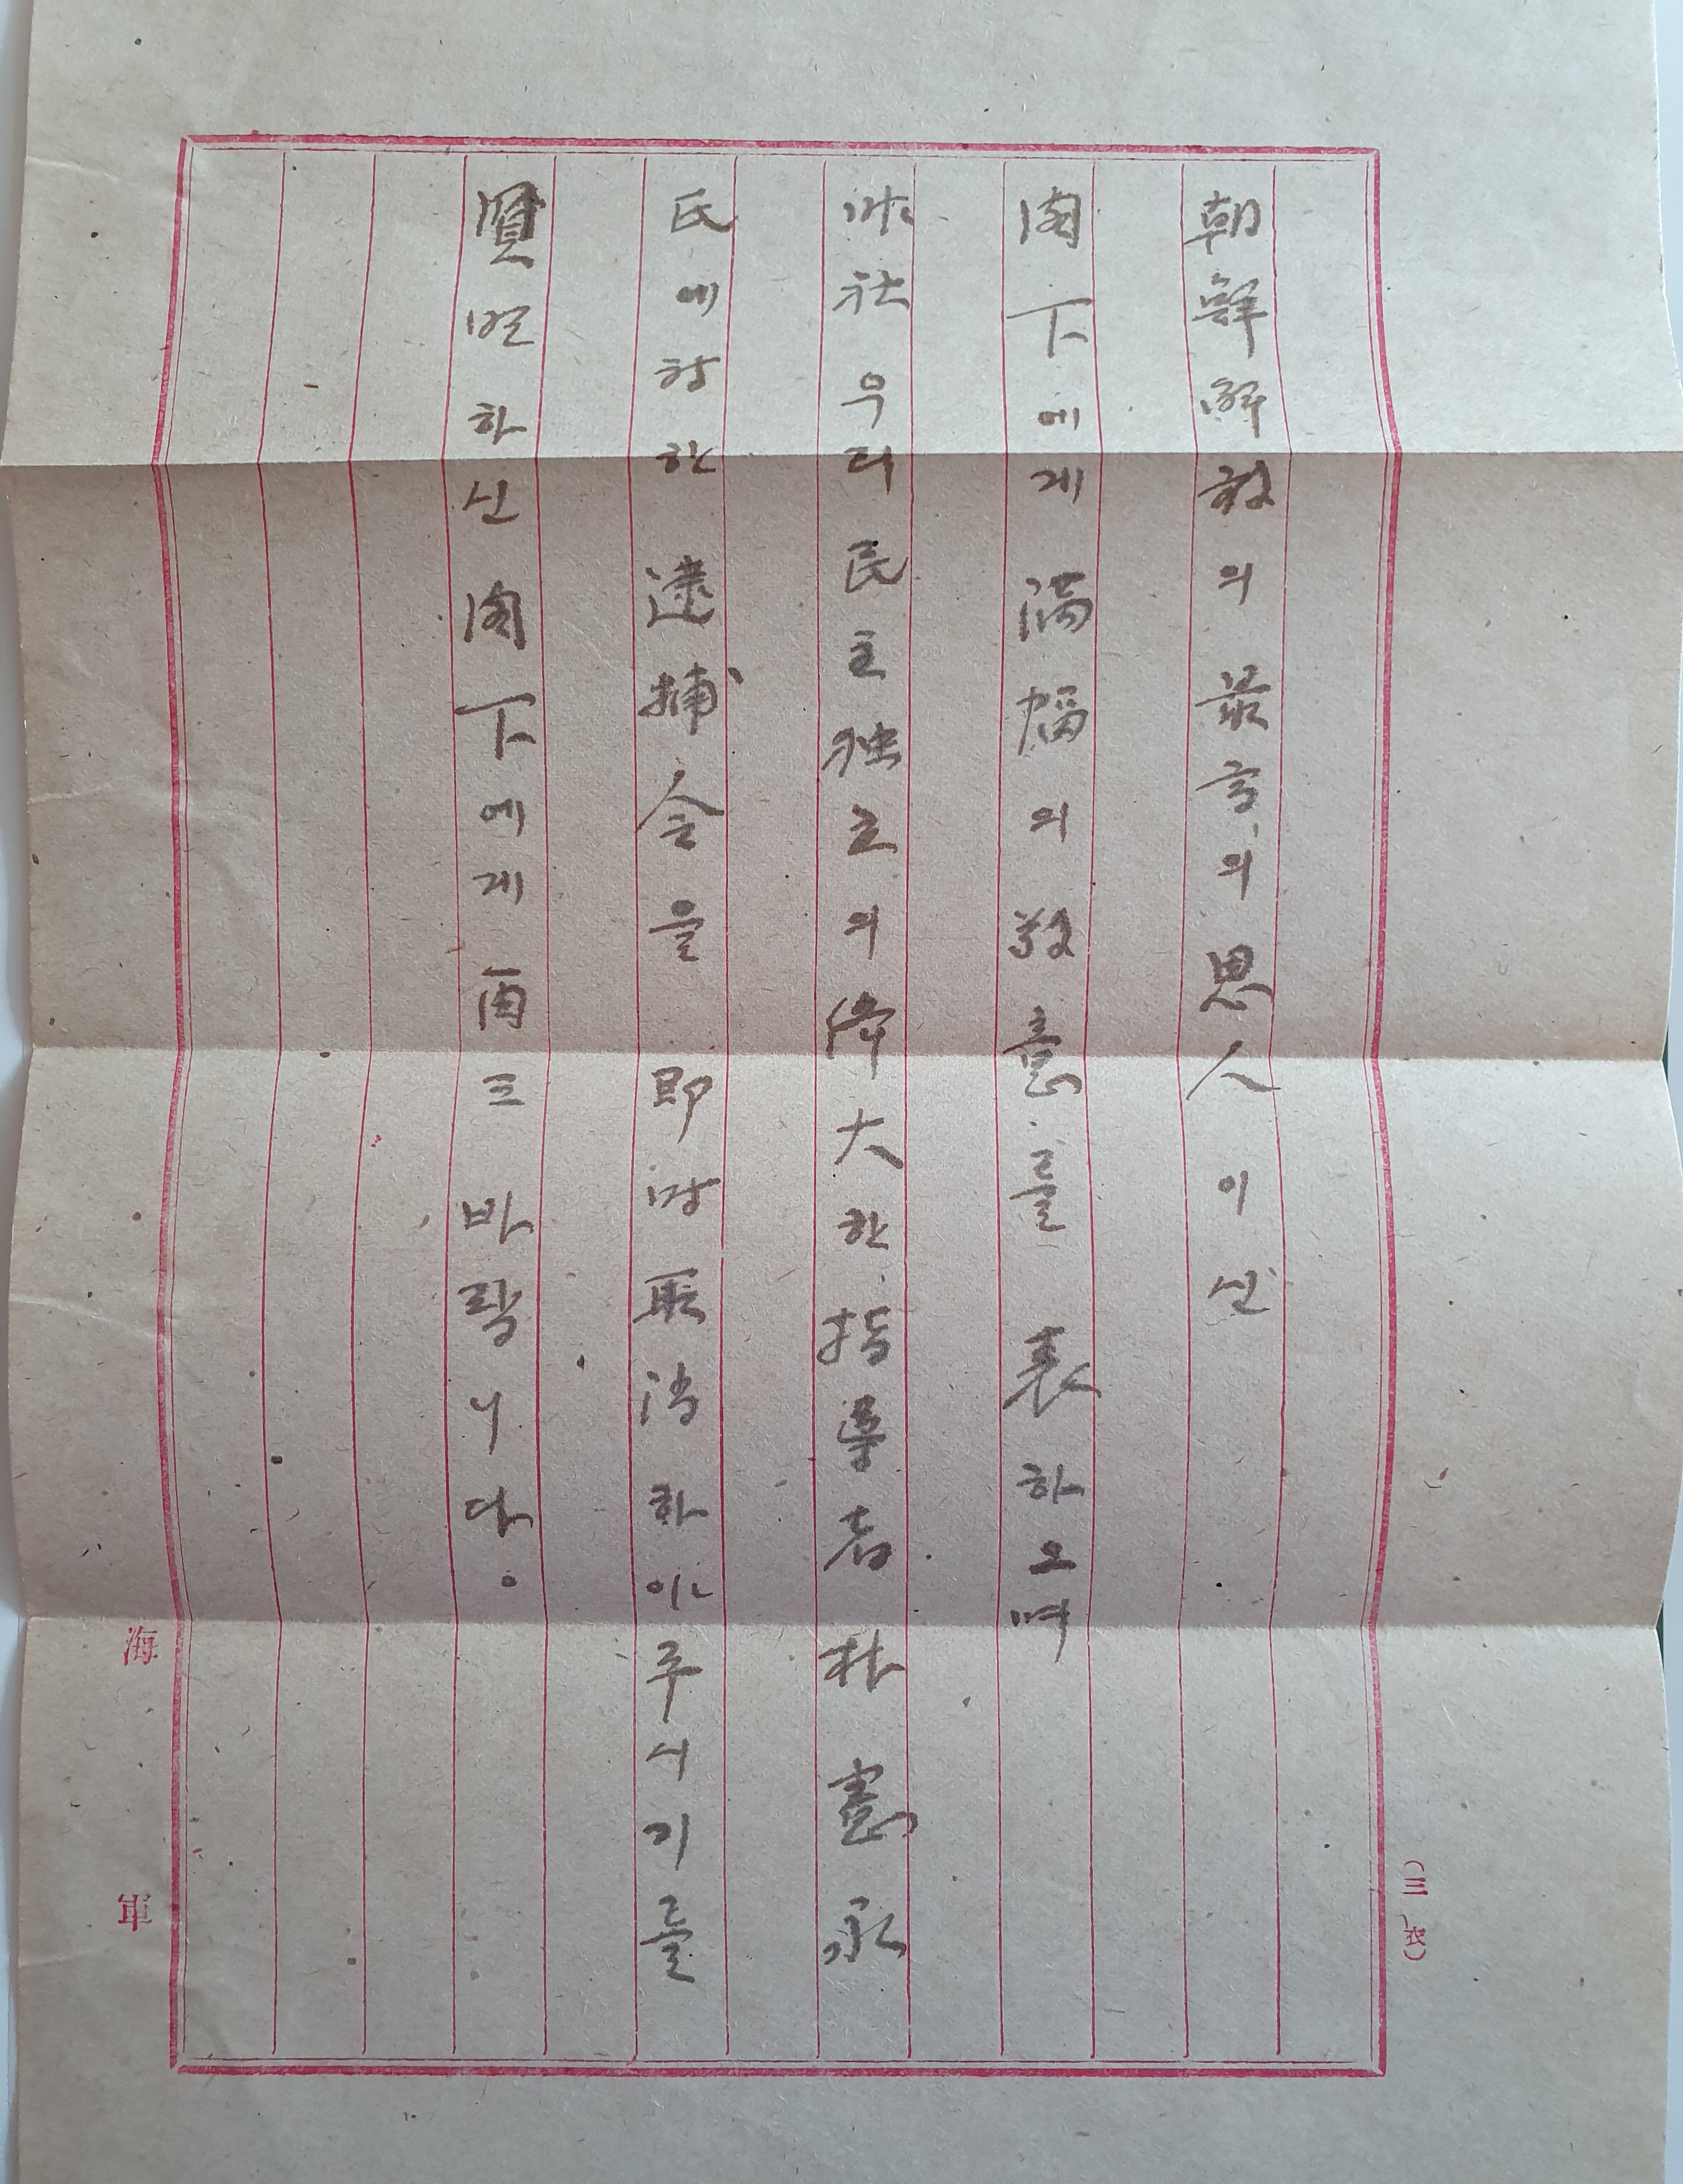 朝鮮解放의 最高의 恩人이신
閣下에게 満幅의 敬意를 表하오며
우리 民主独立의 偉大한 指導者 朴憲永
氏에 対한 逮捕令을 即時 取消하야주시기를
賢明하신 閣下에게 再三 바람니다。
海軍
（三、衣）